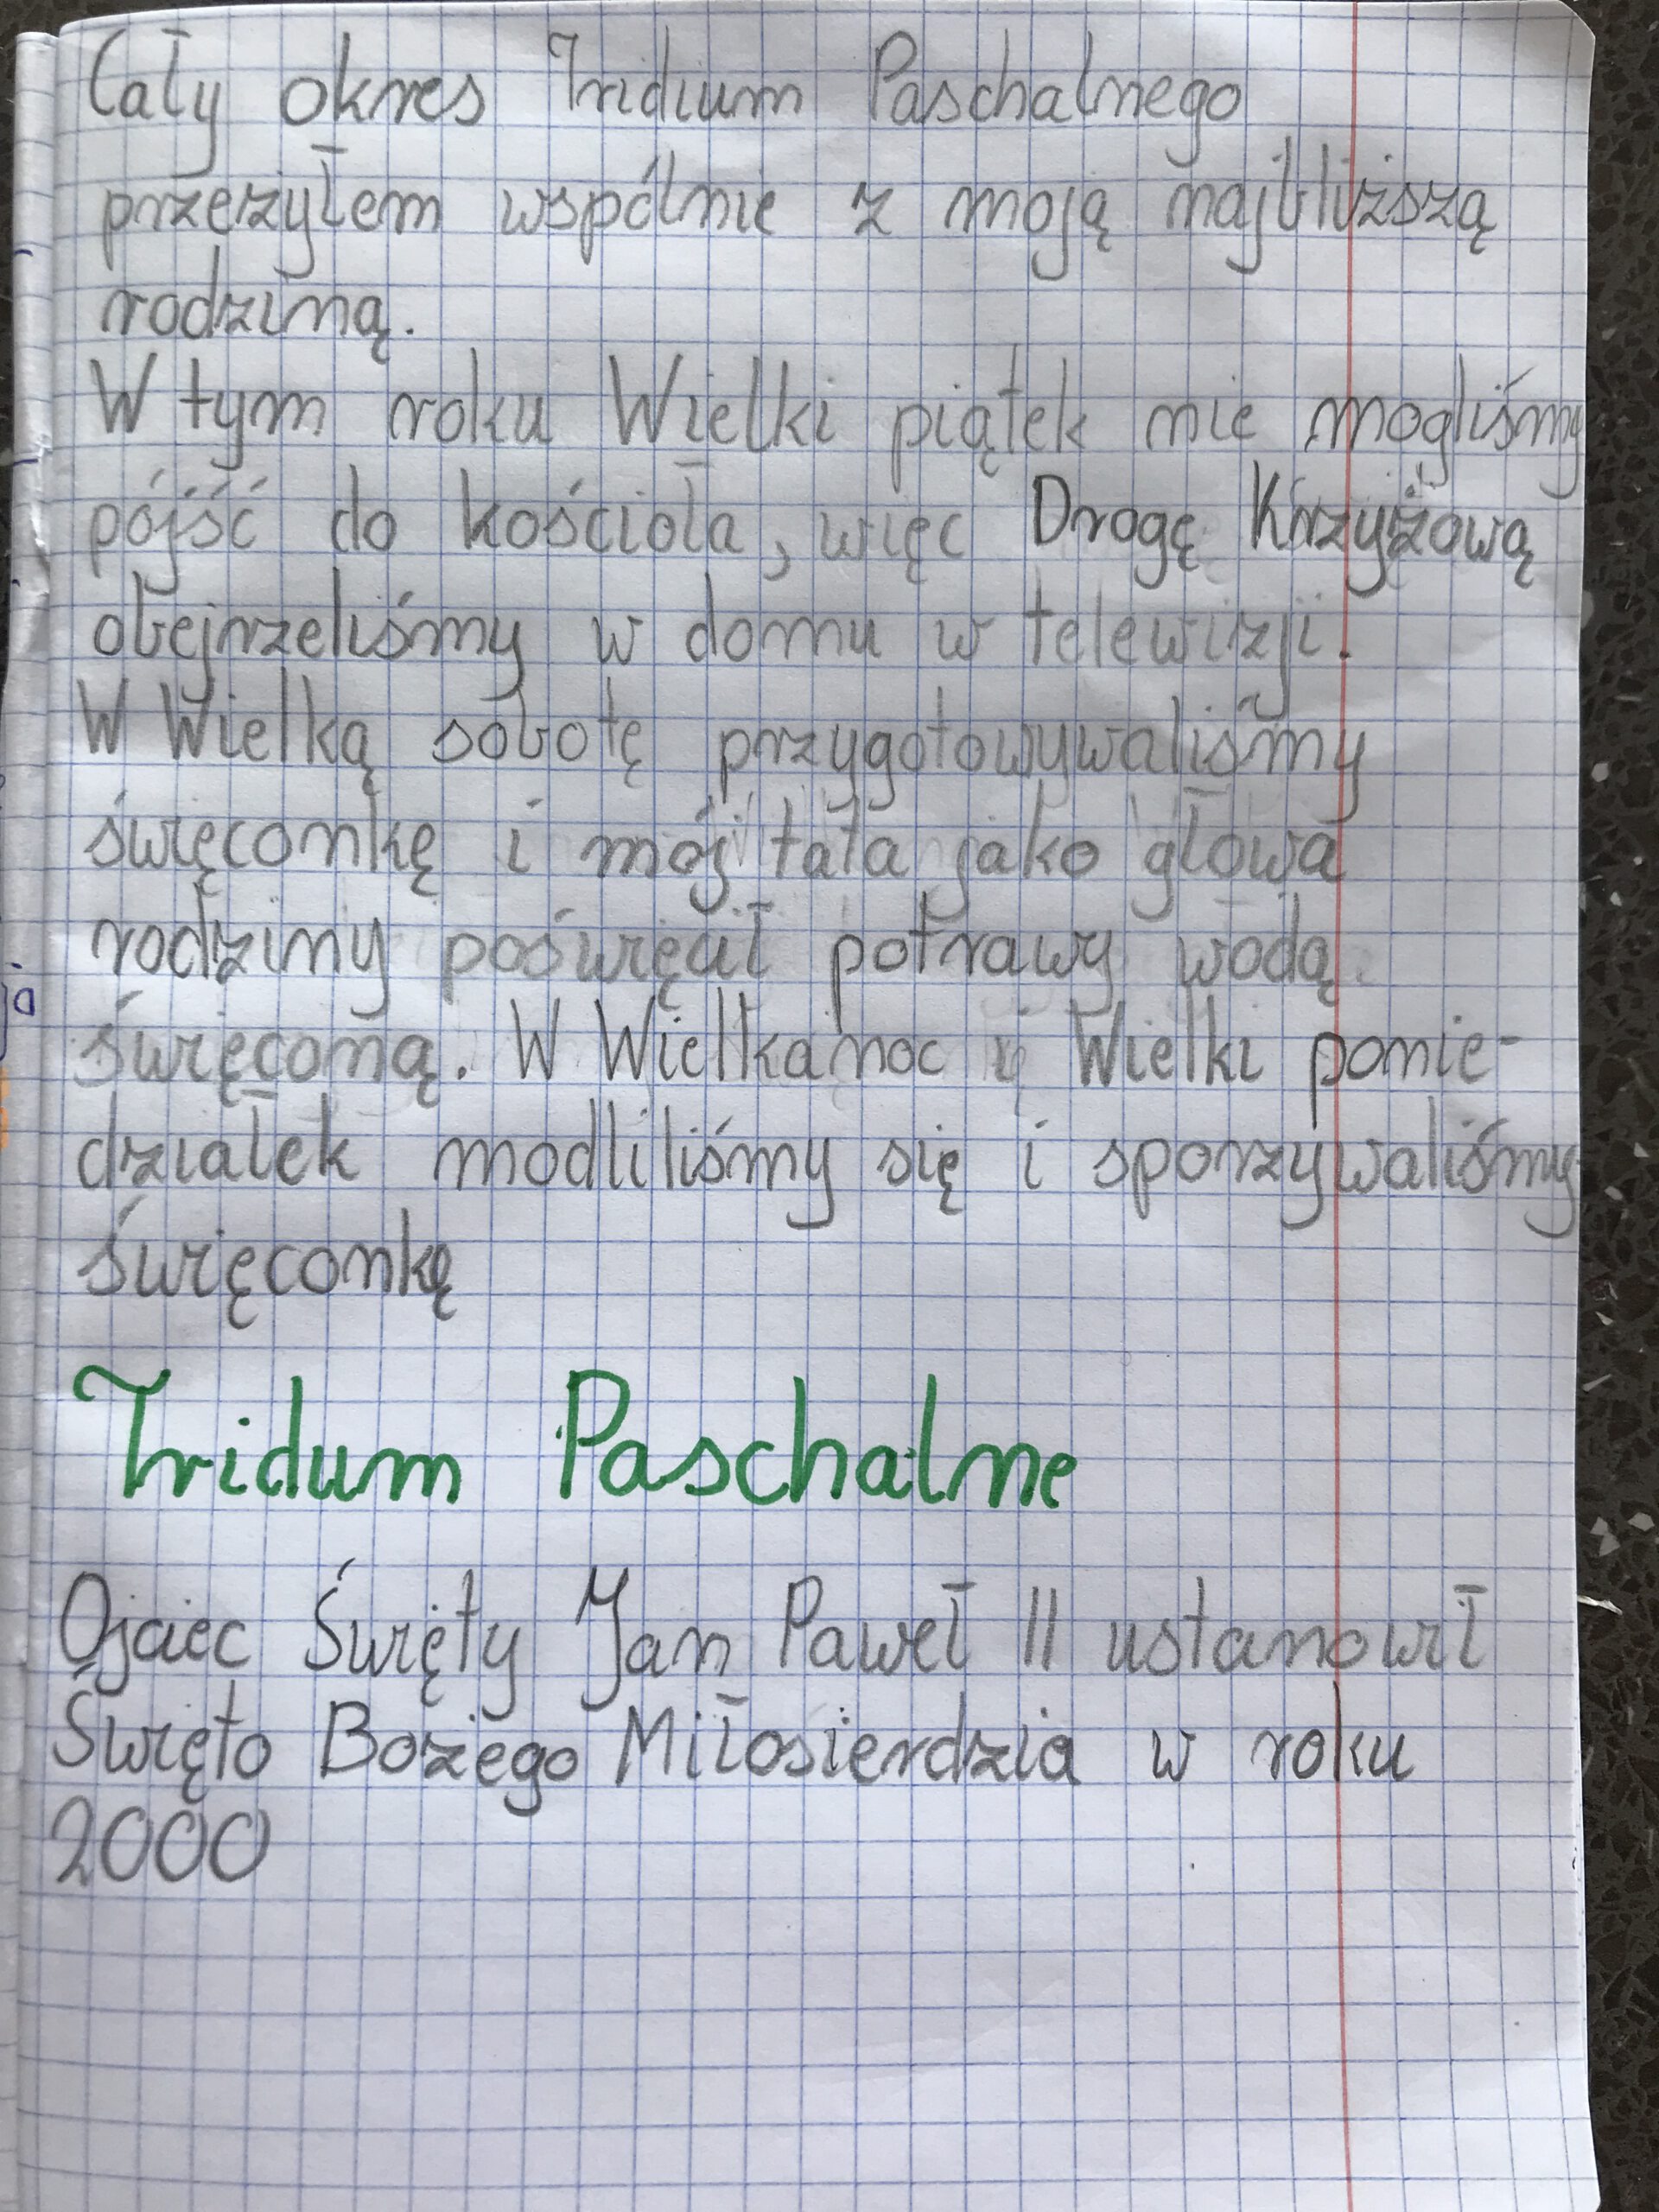 Cały okres Tridium Paschalnego
przeżyłem wspólnie z moją najbliższą
rodziną.
W tym roku Wielki piątek nie mogliśmy
pójść do kościoła, więc Drogę Krzyżową
obejrzeliśmy w domu w telewizji.
W Wielką sobotę przygotowywaliśmy
święconkę i mój tata jako głowa
rodziny poświęcił potrawy wodą
święconą. W Wielkanoc i Wielki ponie-
działek modliliśmy się i sporzywaliśmy
święconkę
Tridum Paschalne
Ojciec Święty Jan Paweł II ustanowił
Święto Bożego Miłosierdzia w roku
2000